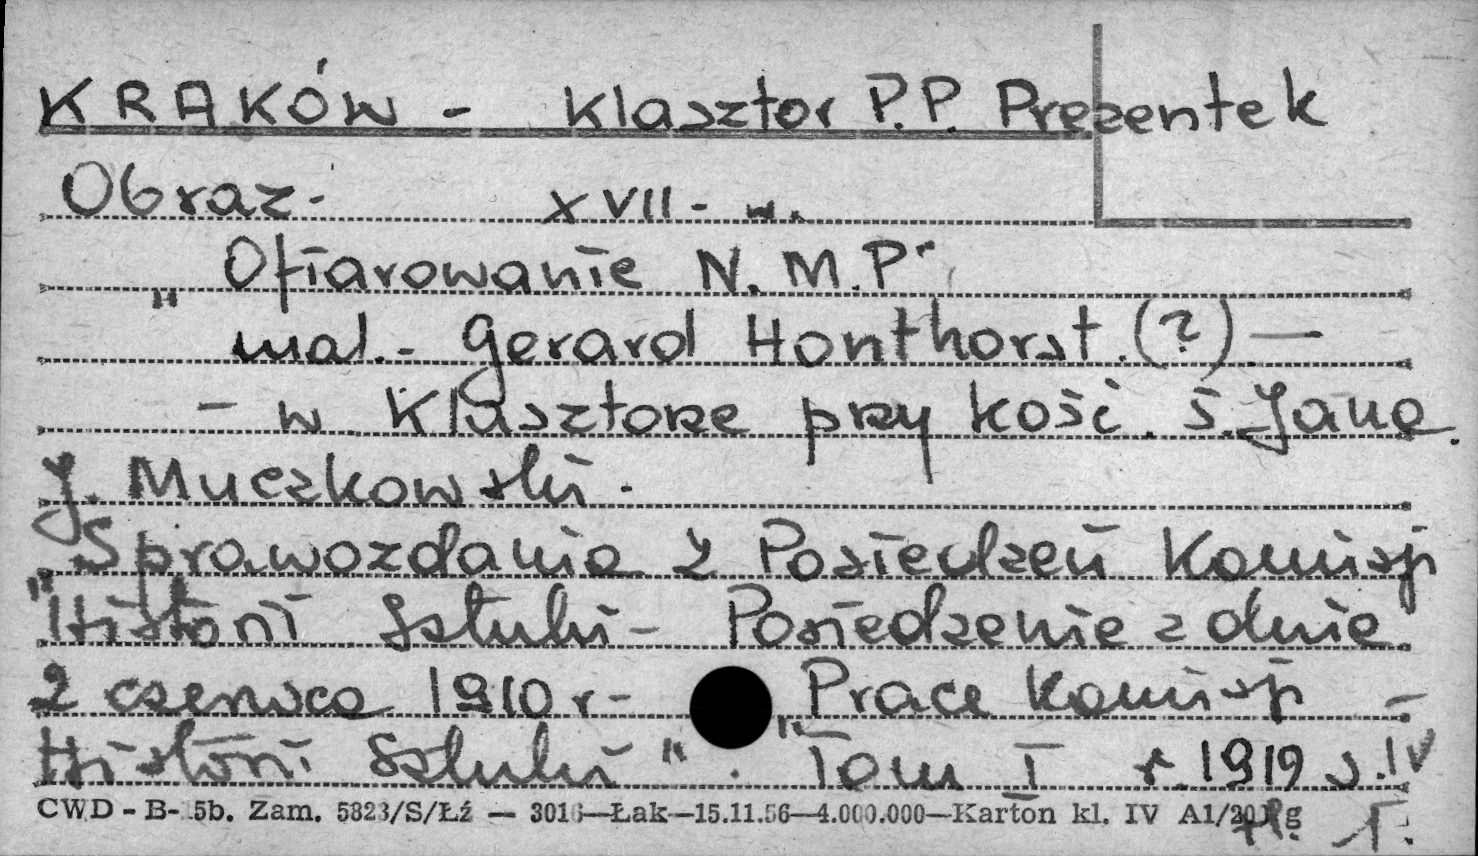 KRAKÓW - Klasztor P.P. Prezentek
Obraz - XVII - w.
"Ofiarowanie N.M.P"
mal. - Gerard Honthorst (?) —
- w Klasztorze przy kość. ś. Jana.
J. Muczkowski.
"Sprawozdania z Posiedzeń Komisji
Historii Sztuki - Posiedzenie z dnia
2 czerwca 1910 r - "Prace Komisji -
Historii Sztuki". Tom I r. 1919 s. IV
CWD - B-15b. Zam. 5823/S/Łź — 3016—Łak—15.11.56—4.000.000—Karton kl. IV A1/20